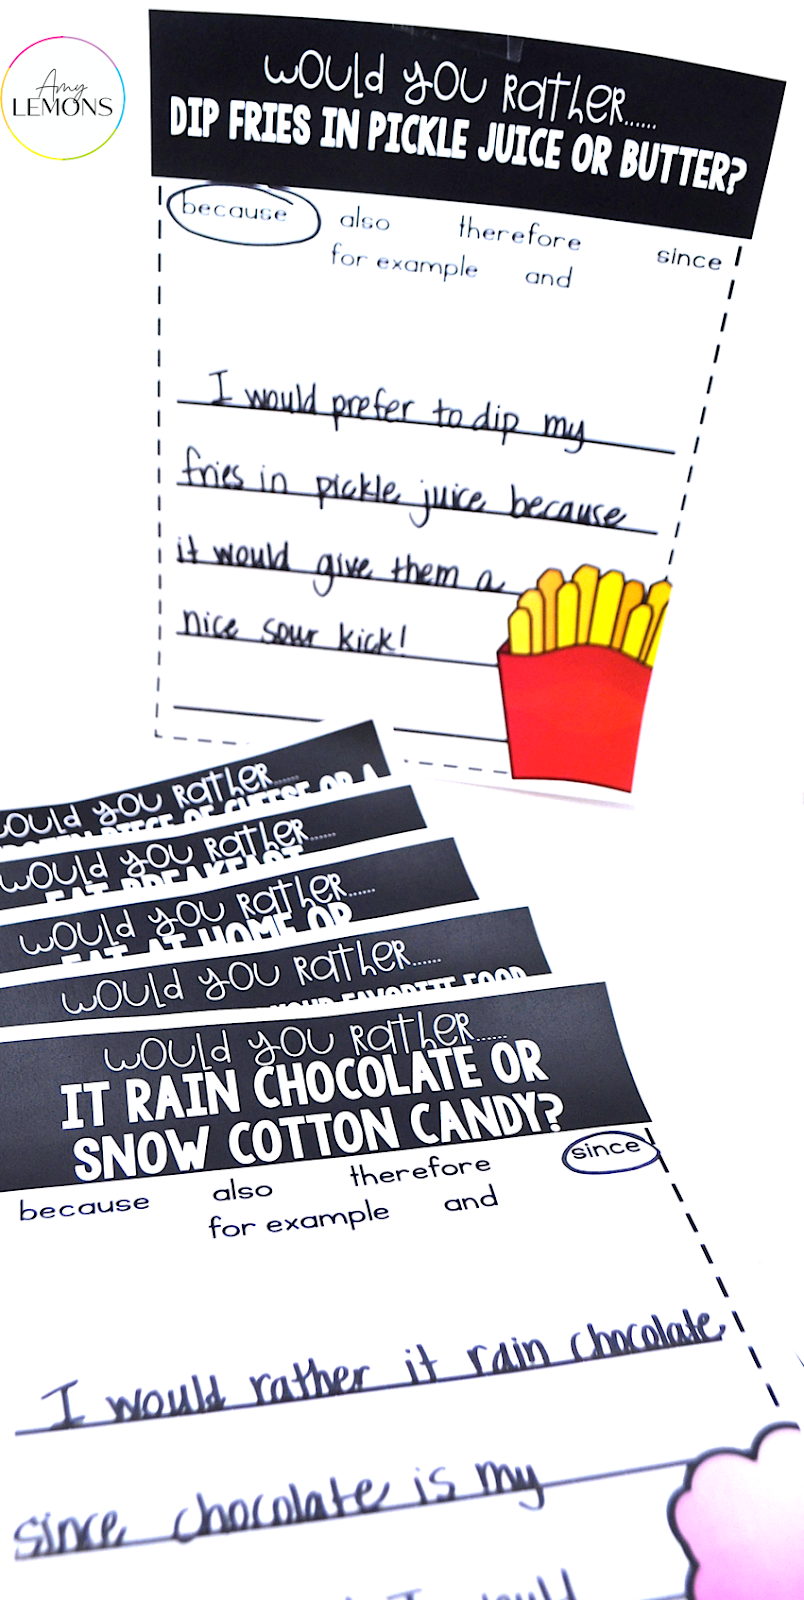 Amy
LEMONS
would you rather......
DIP FRIES IN PICKLE JUICE OR BUTTER?
because also therefore since
for example and
I would prefer to dip my
fries in pickle juice because
it would give them a
nice sour kick!
would you rather......
PIECE OF CHEESE OR A
would you rather......
EAT BREAKFAST
would you rather......
EAT AT HOME OR
would you rather......
YOUR FAVORITE FOOD
would you rather......
IT RAIN CHOCOLATE OR
SNOW COTTON CANDY?
because also therefore since
for example and
I would rather it rain chocolate
since chocolate is my
I would